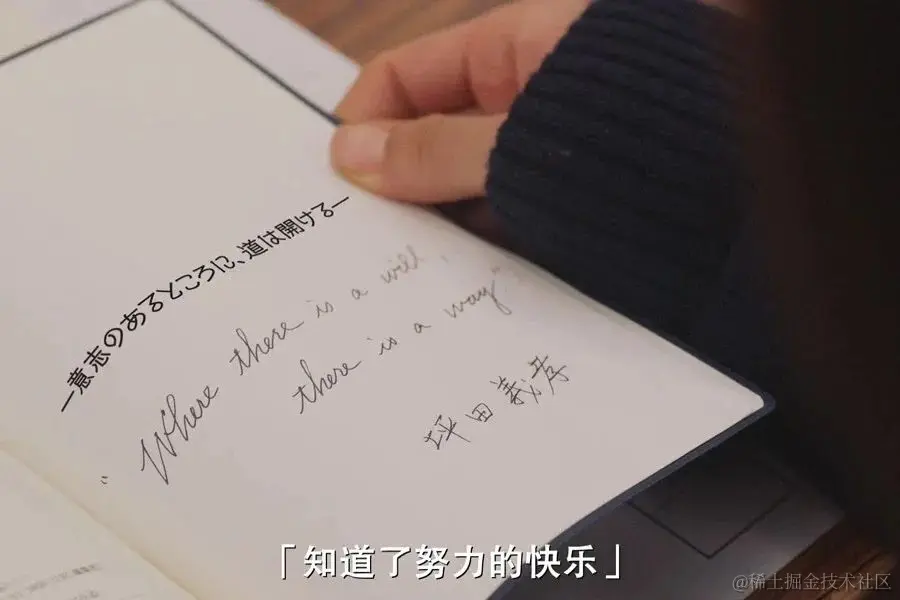 —意志のあるところに、道は開ける—
"Where there is a will,
there is a way"
坪田義孝
「知道了努力的快乐」
@稀土掘金技术社区